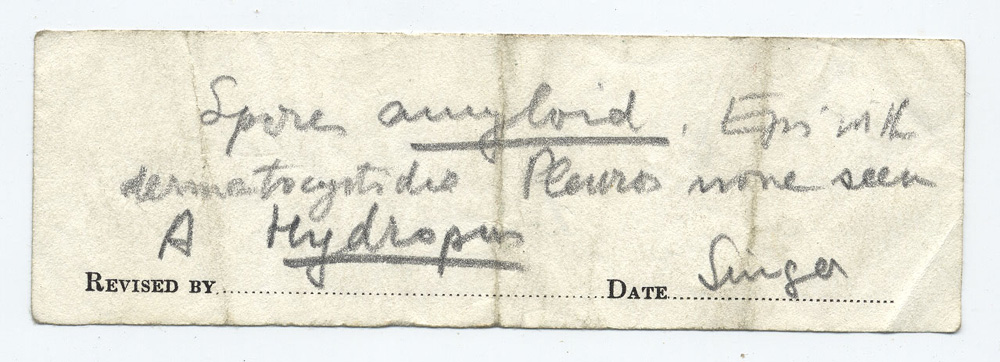 Spores amyloid. Epi with
dermatocystidia Pleuros none seen
A Hydropus
REVISED BY
DATE Singer